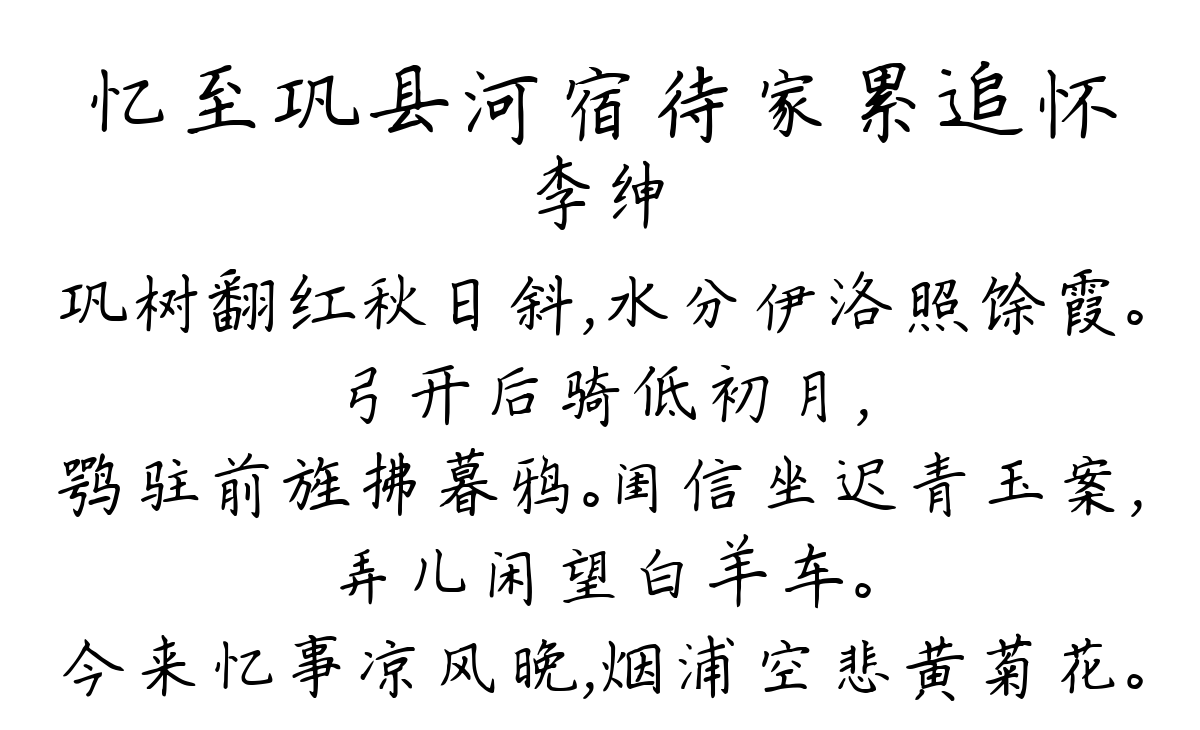 忆至巩县河宿待家累追怀
李绅
巩树翻红秋日斜,水分伊洛照馀霞。
弓开后骑低初月,
鹗驻前旌拂暮鸦。闺信坐迟青玉案,
弄儿闲望白羊车。
今来忆事凉风晚,烟浦空悲黄菊花。